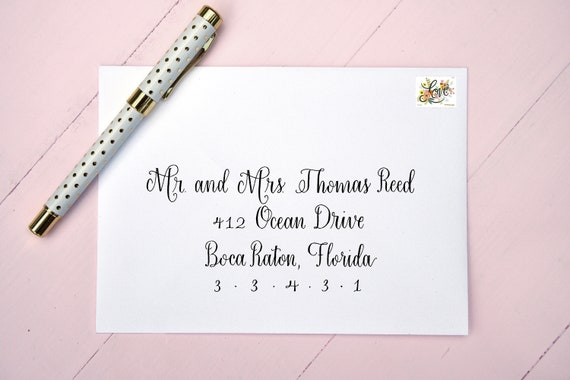 Love
Mr. and Mrs Thomas Reed
412 Ocean Drive
Boca Raton, Florida
3 · 3 · 4 · 3 · 1